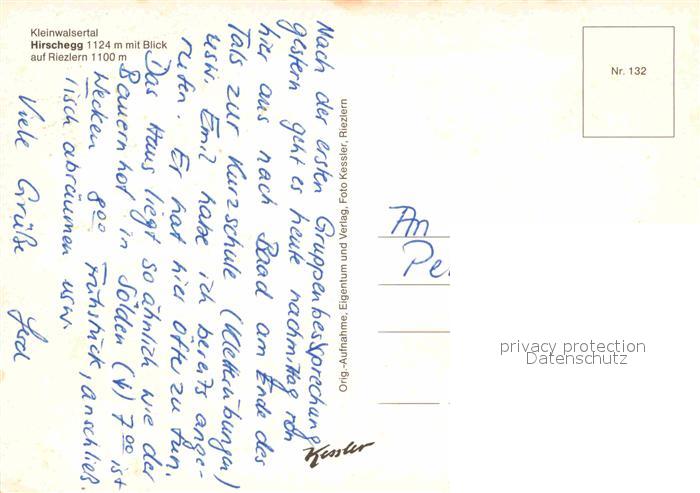 Kleinwalsertal
Hirschegg 1124 m mit Blick
auf Riezlern 1100 m
Nach der ersten Gruppenbesprechung
gestern geht es heute nachmittag von
hier aus nach Baad am Ende des
Tals zur Kurzschule (Kletterübungen)
usw. Emil habe ich bereits ange-
rufen. Er hat hier öfter zu tun.
Das Haus liegt so ähnlich wie der
Bauernhof in Sölden (!) 7 00 ist
Wecken 8 00 Frühstück, anschließ.
Tisch abräumen usw.
Viele Grüße
Orig.-Aufnahme, Eigentum und Verlag, Foto Kessler, Riezlern
Kessler
Nr. 132
An
Pe
privacy protection
Datenschutz